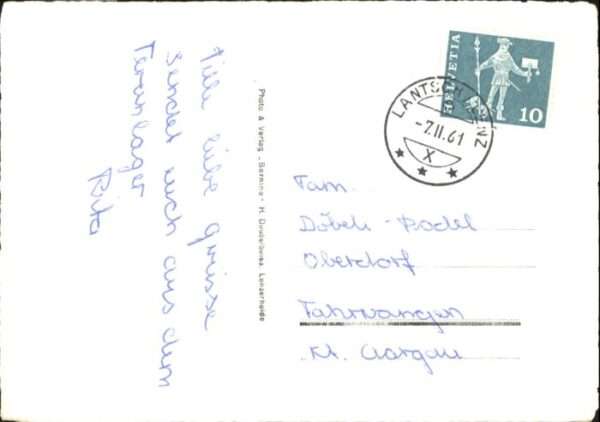 tille liebe grüsse
sendet euch aus dem
Ferienlager
Rita
Photo & Verlag „Bernina" H. Lenzerheide
HELVETIA
10
LANTSCH/LENZ
-7.II.61
X
Fam.
Döbeli-Bodel
Oberdorf
Fahrwangen
Kt. Aargau